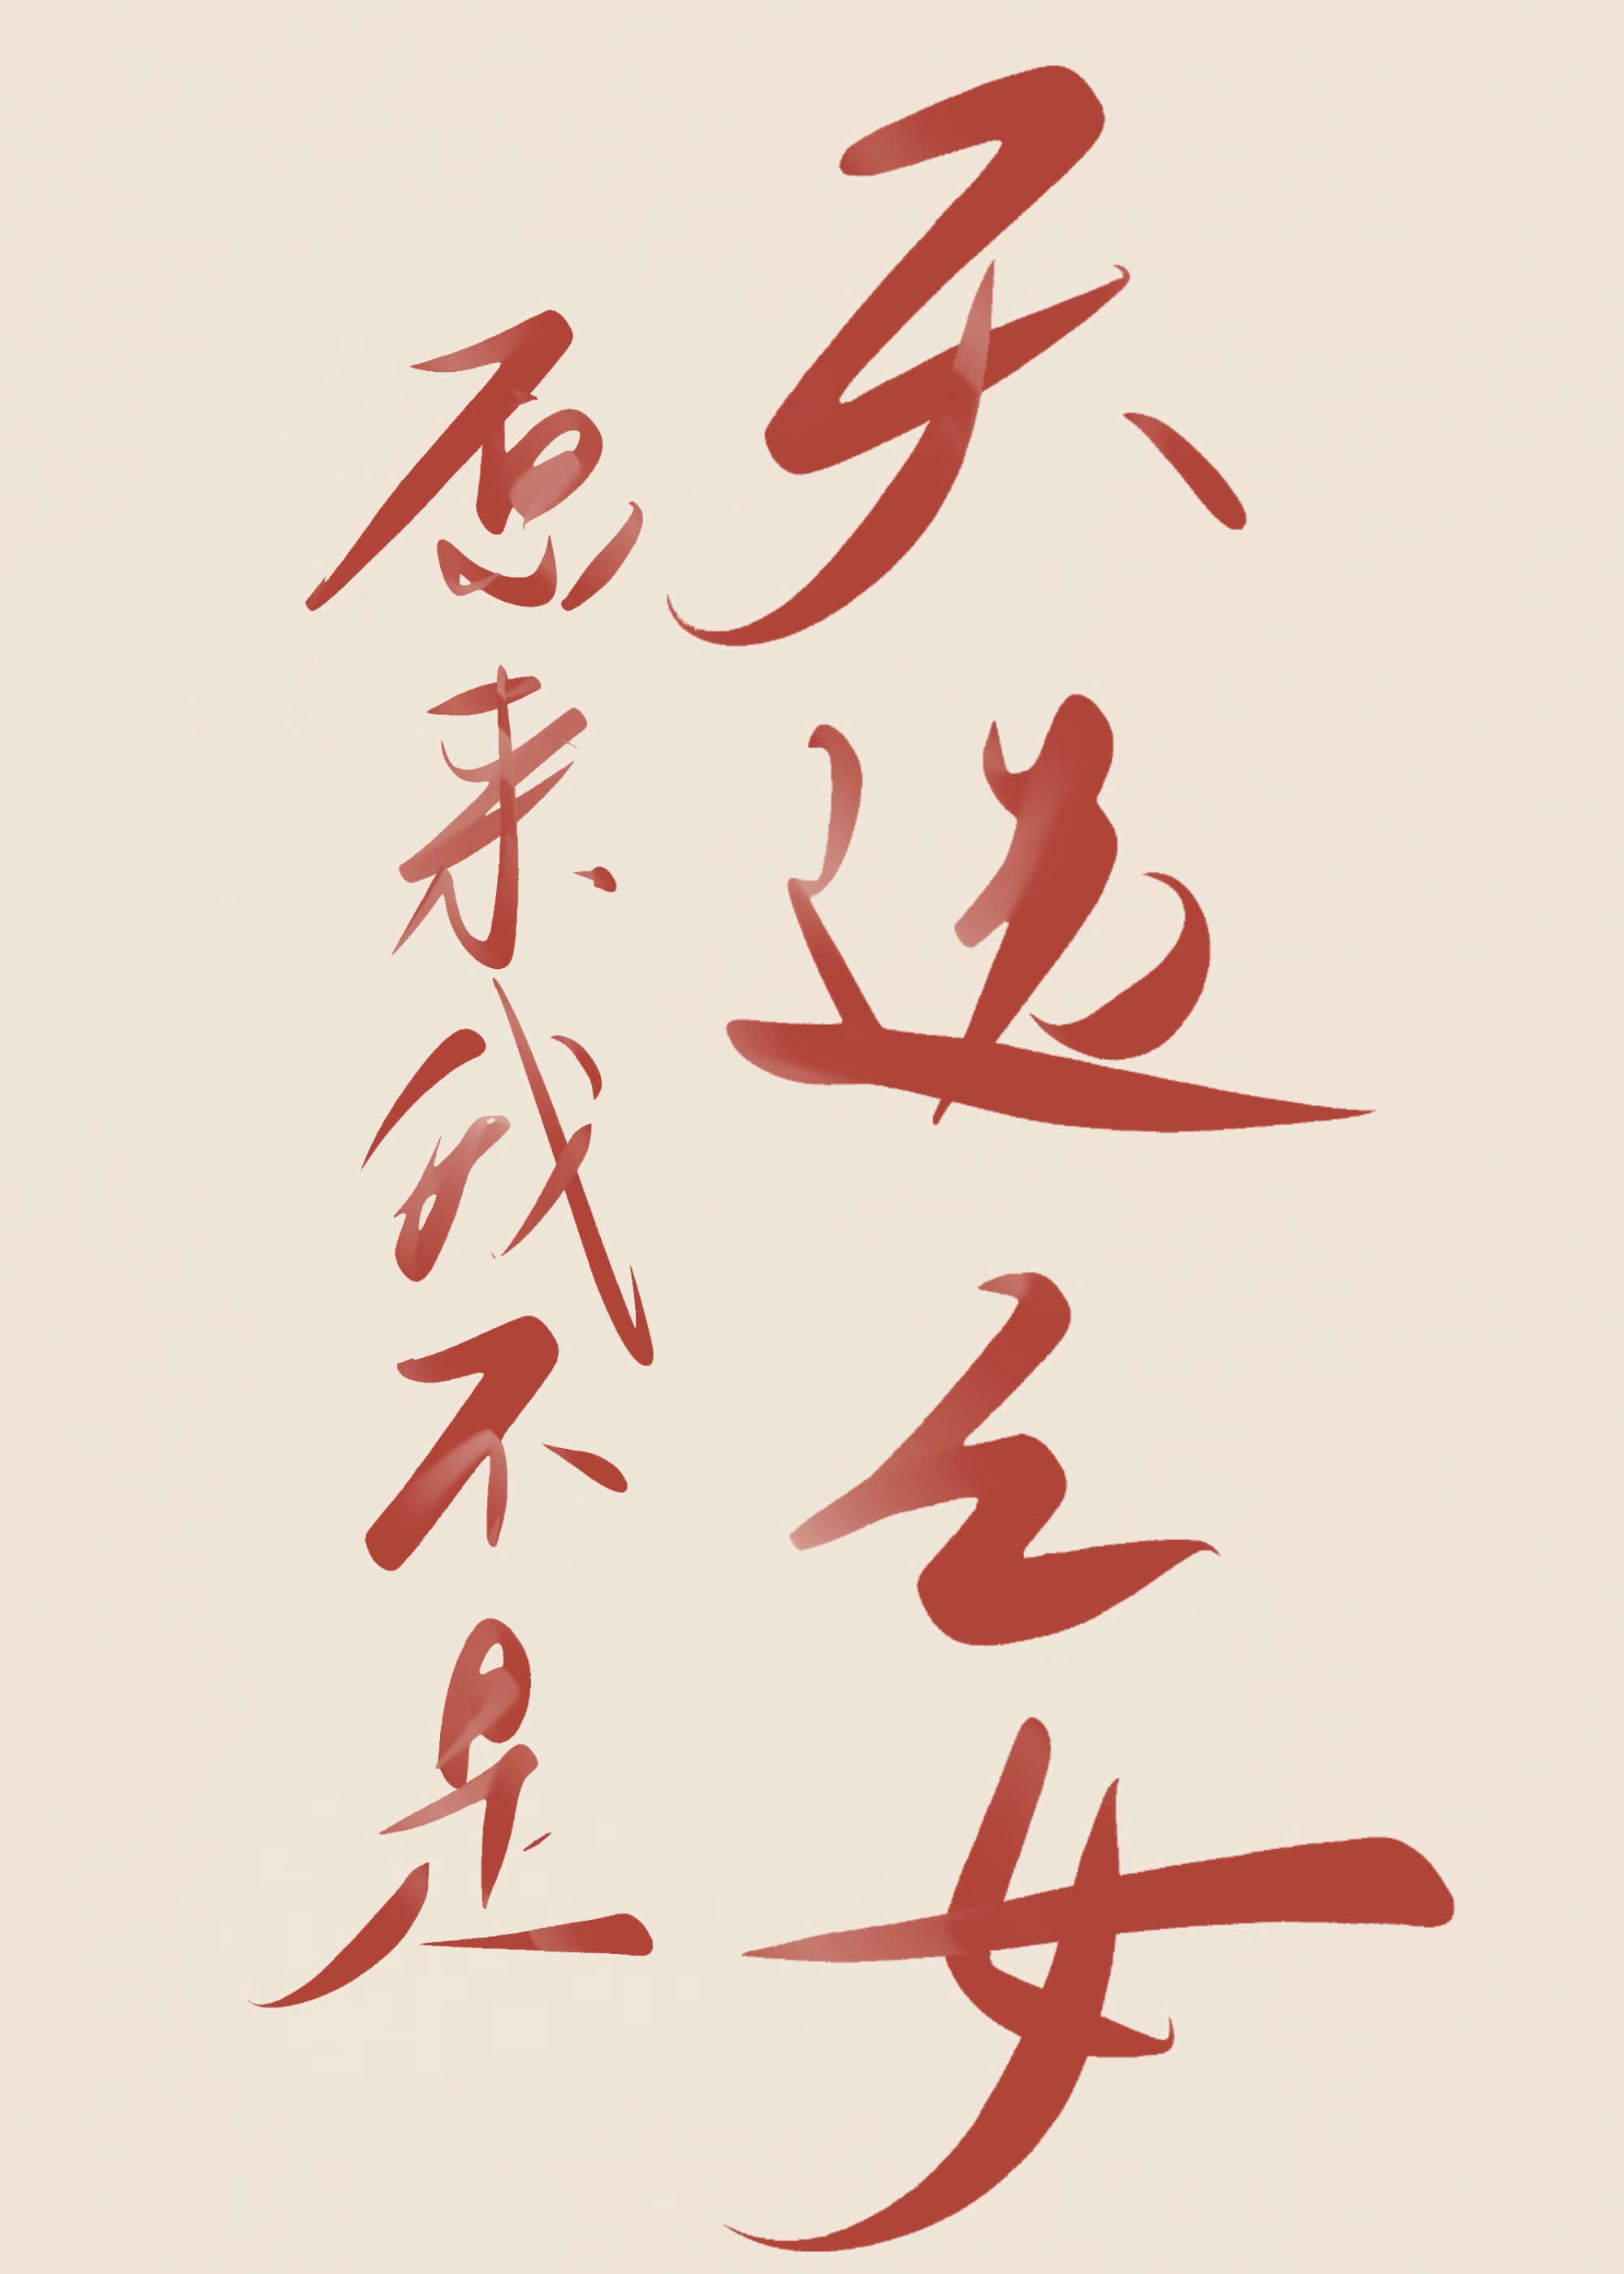 天选之女
原来我不是